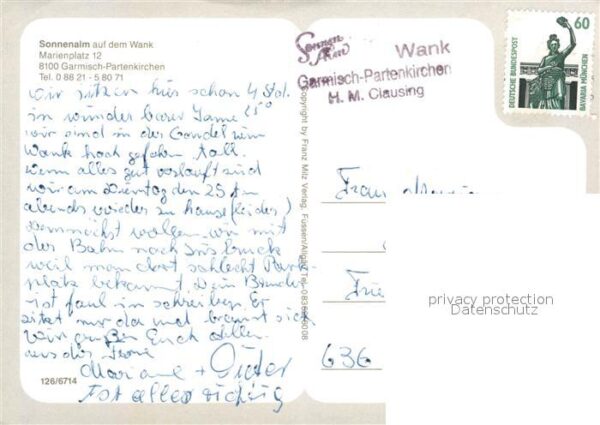 Sonnenalm auf dem Wank
Marienplatz 12
8100 Garmisch-Partenkirchen
Tel. 0 88 21 - 5 80 71
wir sitzen hier schon 4 Std.
in wunderbarer Sonne 25°
wir sind in der Gondel zum
Wank hoch gefahren toll.
wenn alles gut verläuft sind
wir am Dienstag den 25ten
abends wieder zu hause (leider)
demnächst wollen wir mit
der Bahn nach Insbruck
weil man dort schlecht Park-
plätze bekommt Dein Bruder
ist faul im schreiben Er
sitzt nur da und bräunt sich
Wir grüßen Euch allen
aus der Ferne
Mariane + Dieter
Ist alles richtig
126/6714
Copyright by Franz Milz Verlag, Füssen/Allgäu Tel.
Sonnen Alm Wank
Garmisch-Partenkirchen
H. M. Clausing
DEUTSCHE BUNDESPOST
60
BAVARIA MÜNCHEN
Frau
636
privacy protection
Datenschutz